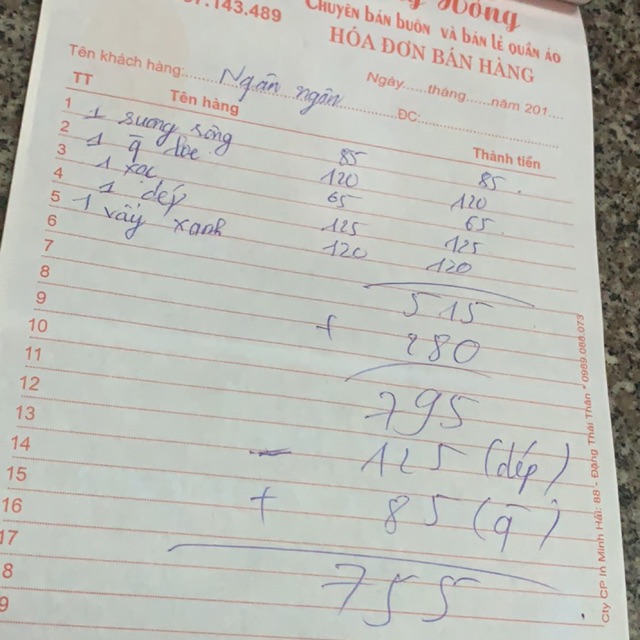 .143.489
Hồng
CHUYÊN BÁN BUÔN VÀ BÁN LẺ QUẦN ÁO
HÓA ĐƠN BÁN HÀNG
Ngày......tháng......năm 201....
Tên khách hàng: Ngân ngân
ĐC:
TT Tên hàng Thành tiền
1 1 sương sông 85 85
2 1 q̄ loe 120 120
3 1 xạc 65 65
4 1 dép 125 125
5 1 váy xanh 120 120
6
7 515
8 + 280
9
10 795
11
12 - 125 (dép)
13
14 + 85 (q̄)
15
16 755
17
8
9
Cty CP In Minh Hải: 88 - Đặng Thái Thân * 0989.066.073